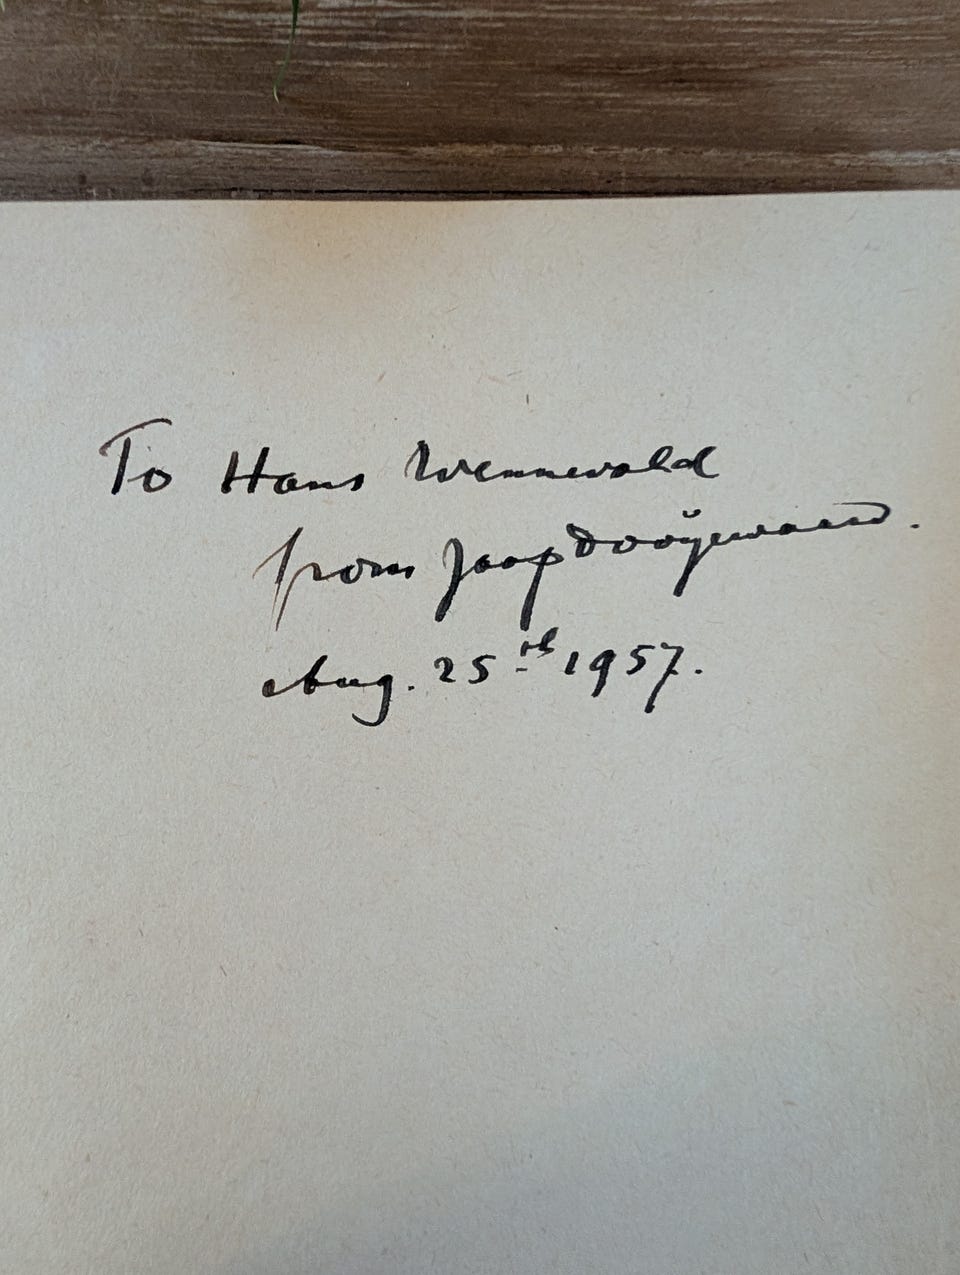 To Hans Wennewald
from Jaap Dooijewaard.
Aug. 25th 1957.